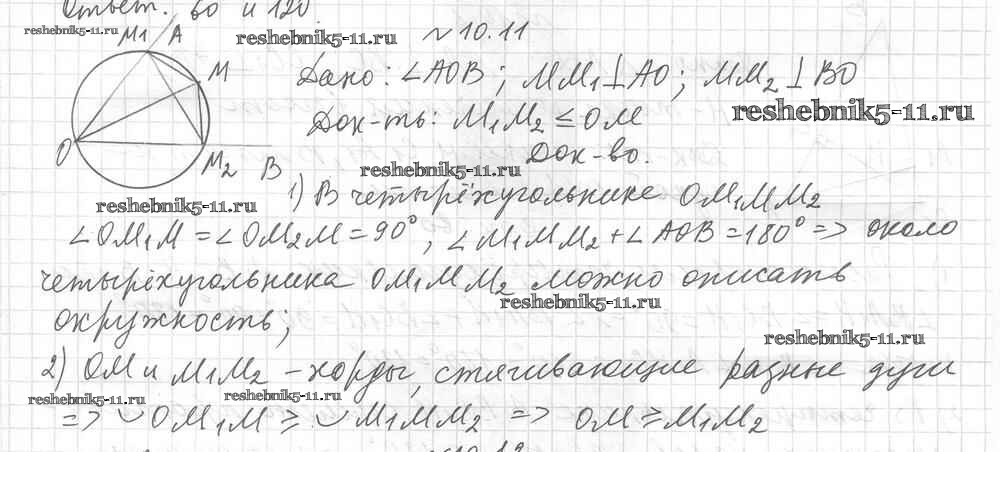 Ответ. 60 и 120.
reshebnik5-11.ru
M1 A
reshebnik5-11.ru
№ 10.11
M
Дано: ∠AOB; MM₁⊥AO; MM₂⊥BO
reshebnik5-11.ru
Док-ть: M₁M₂ ≤ OM
O
Док-во.
M2 B
reshebnik5-11.ru
reshebnik5-11.ru
1) В четырёхугольнике OM₁MM₂
∠OM₁M = ∠OM₂M = 90°, ∠M₁MM₂ + ∠AOB = 180° => около
четырёхугольника OM₁MM₂ можно описать
reshebnik5-11.ru
окружность;
reshebnik5-11.ru
2) OM и M₁M₂ – хорды, стягивающие разные дуги
reshebnik5-11.ru
reshebnik5-11.ru
=> ◡OM₁M ≥ ◡M₁MM₂ => OM ≥ M₁M₂